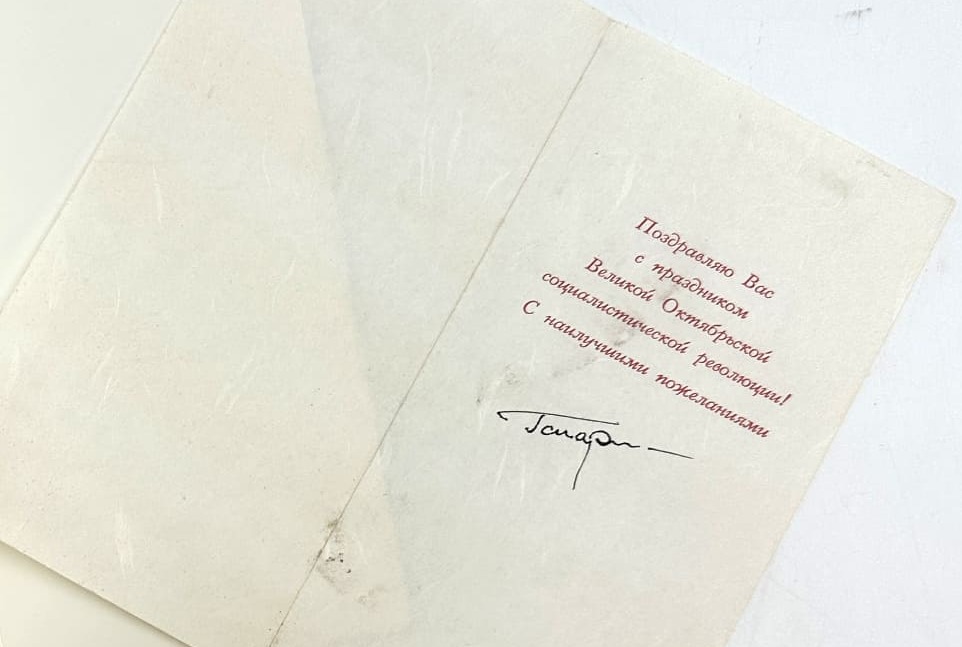 Поздравляю Вас
с праздником
Великой Октябрьской
социалистической революции!
С наилучшими пожеланиями